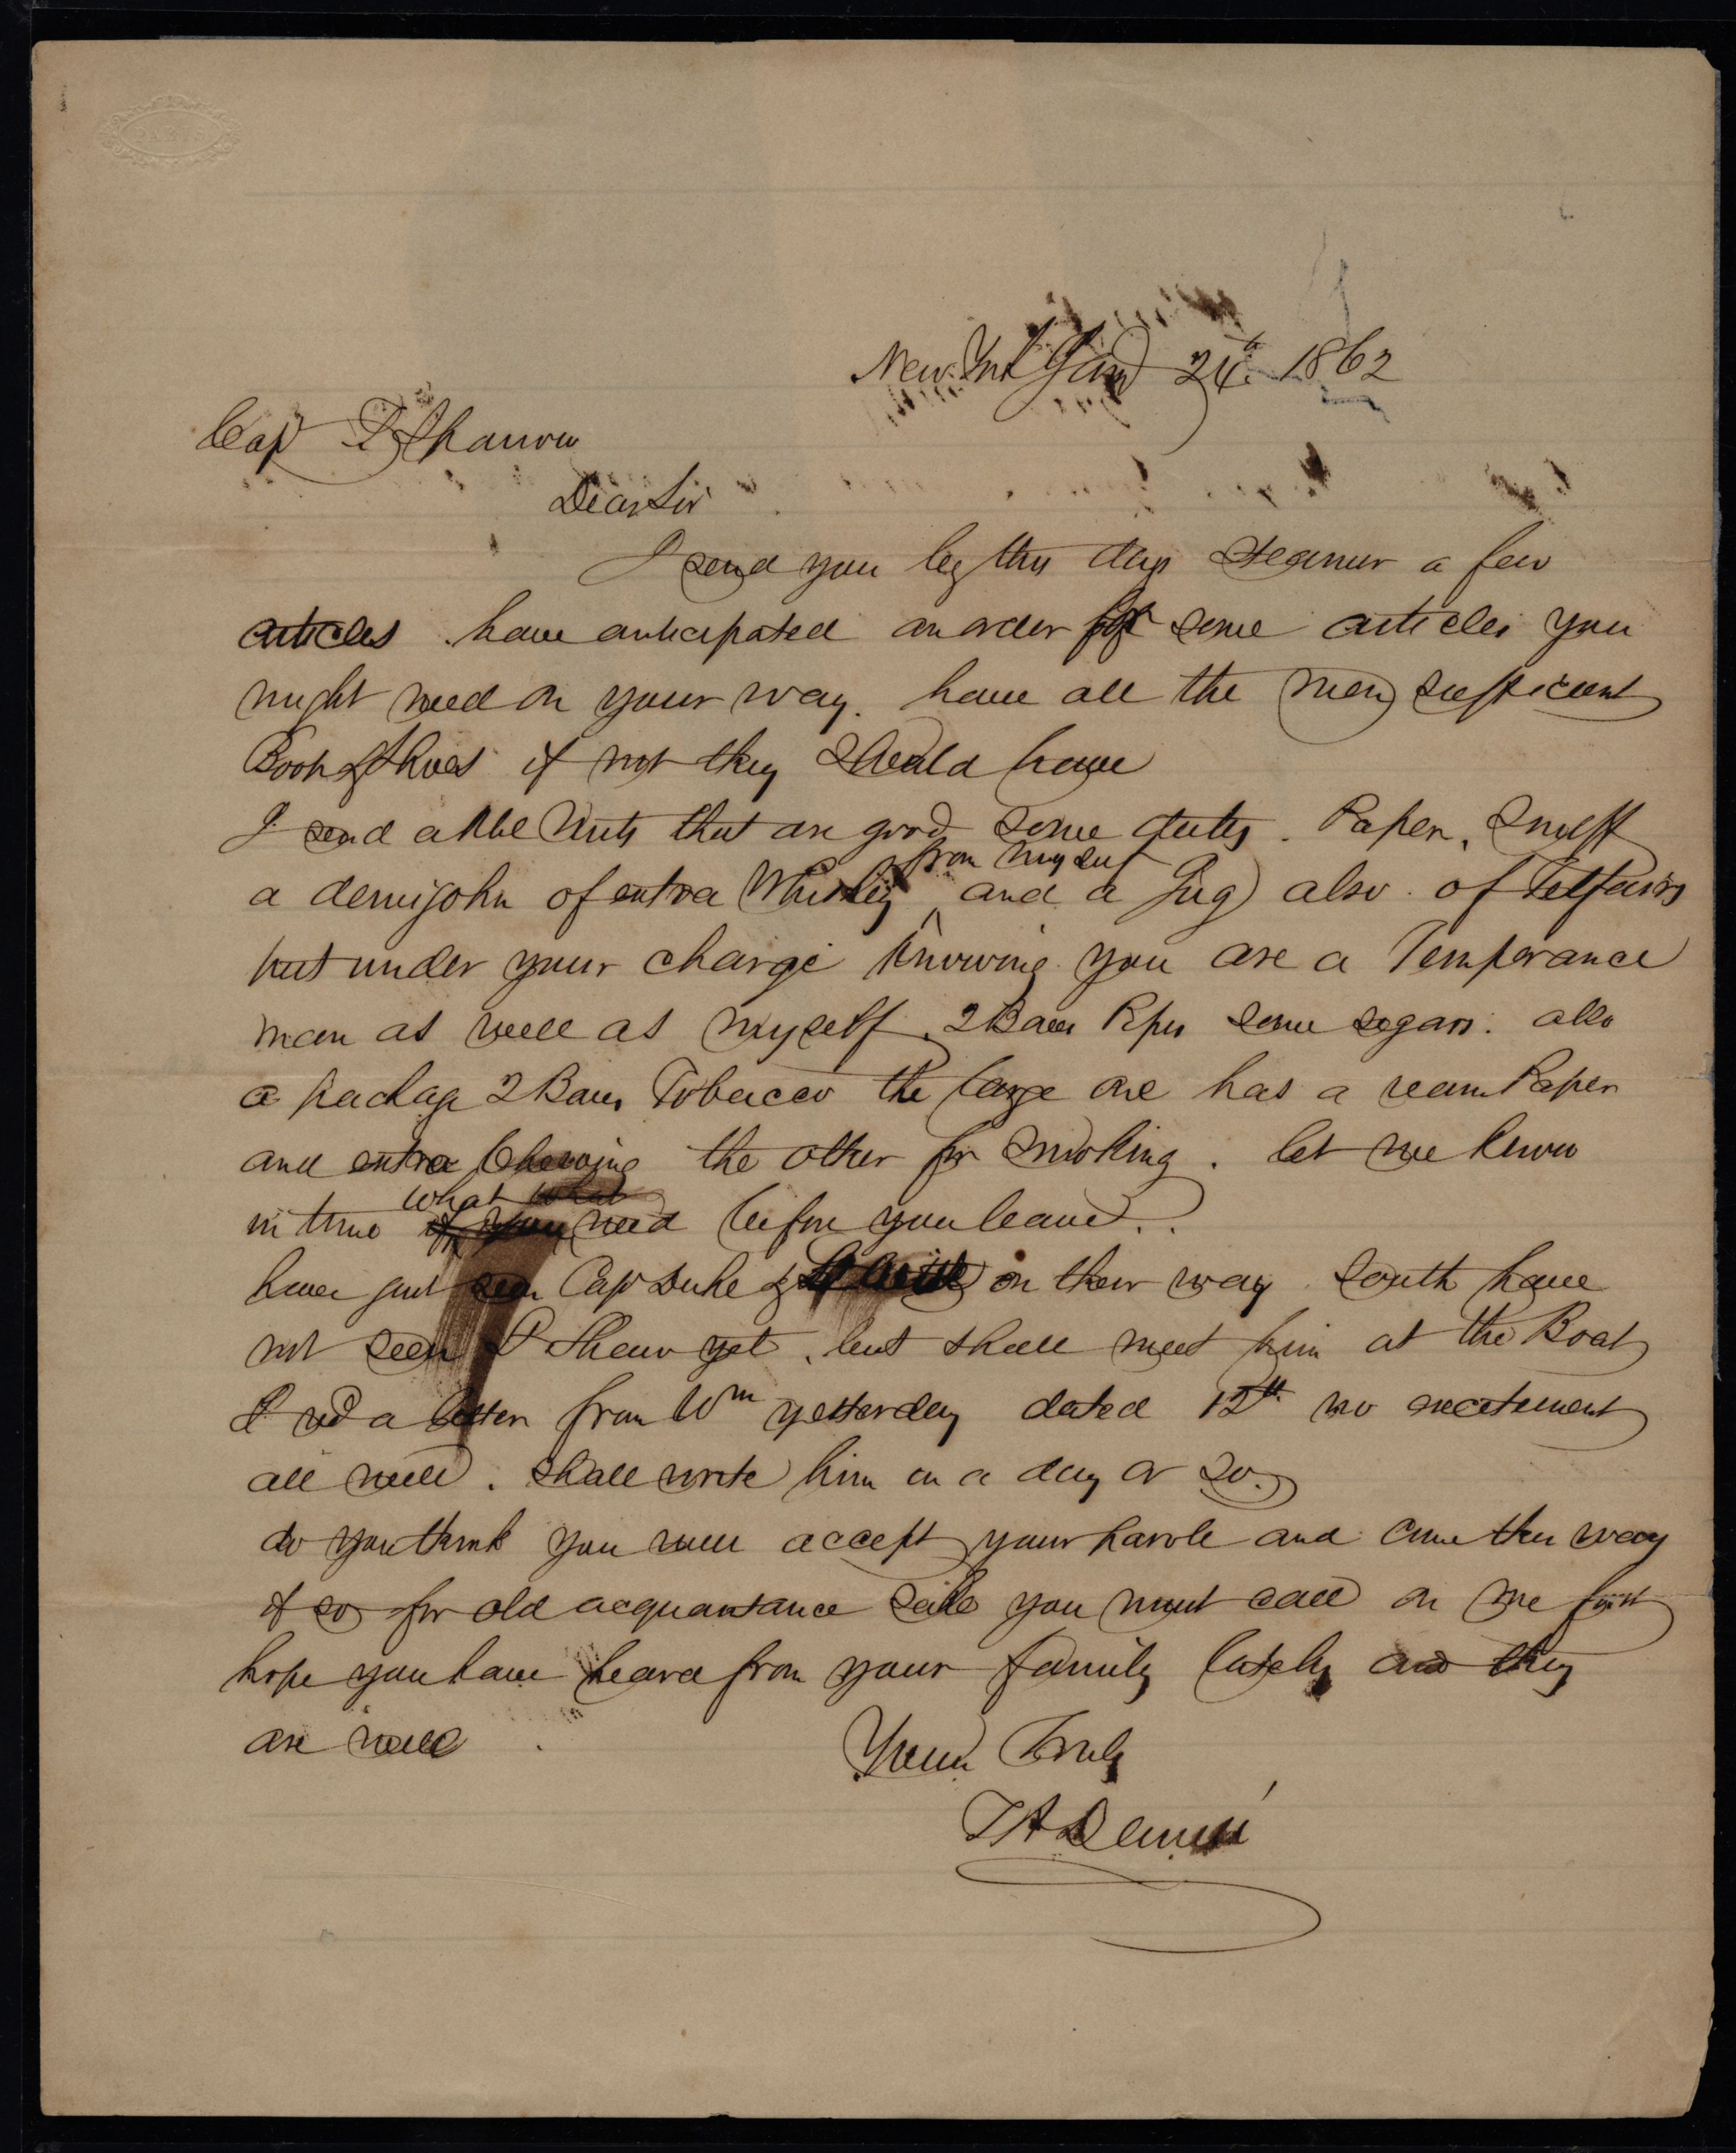 PARIS
New York Jany 24th 1862
Cap T Sharrow
Dear Sir
I send you by this days Steamer a few
articles. have anticipated an order for some articles you
might need on your way. have all the men sufficient
Boots & Shoes if not they Should have
I send a Bbl Nuts that are good some . Paper, Snuff
from myself
a demijohn of extra Whiskey ^ and a Jug also of Telfairs
put under your charge Knowing you are a Temperance
man as well as myself. 2 Boxes Pipes some segars. also
a package 2 Boxes Tobacco the large one has a ream Paper
and extra Chewing the other for Smoking. let me know
what what
in time if you need before you leave.
have just seen Cap Duke & on their way South have
not seen P Shaw yet, but shall meet him at the Boat
I recd a letter from Wm yesterday dated 12th no excitement
all well. Shall write him in a day or so.
do you think you will accept your parole and come this way
if so for old acquaintance sake you must call on me first
hope you have heard from your family lately and they
are well.
Yours Truly
T A Dennis